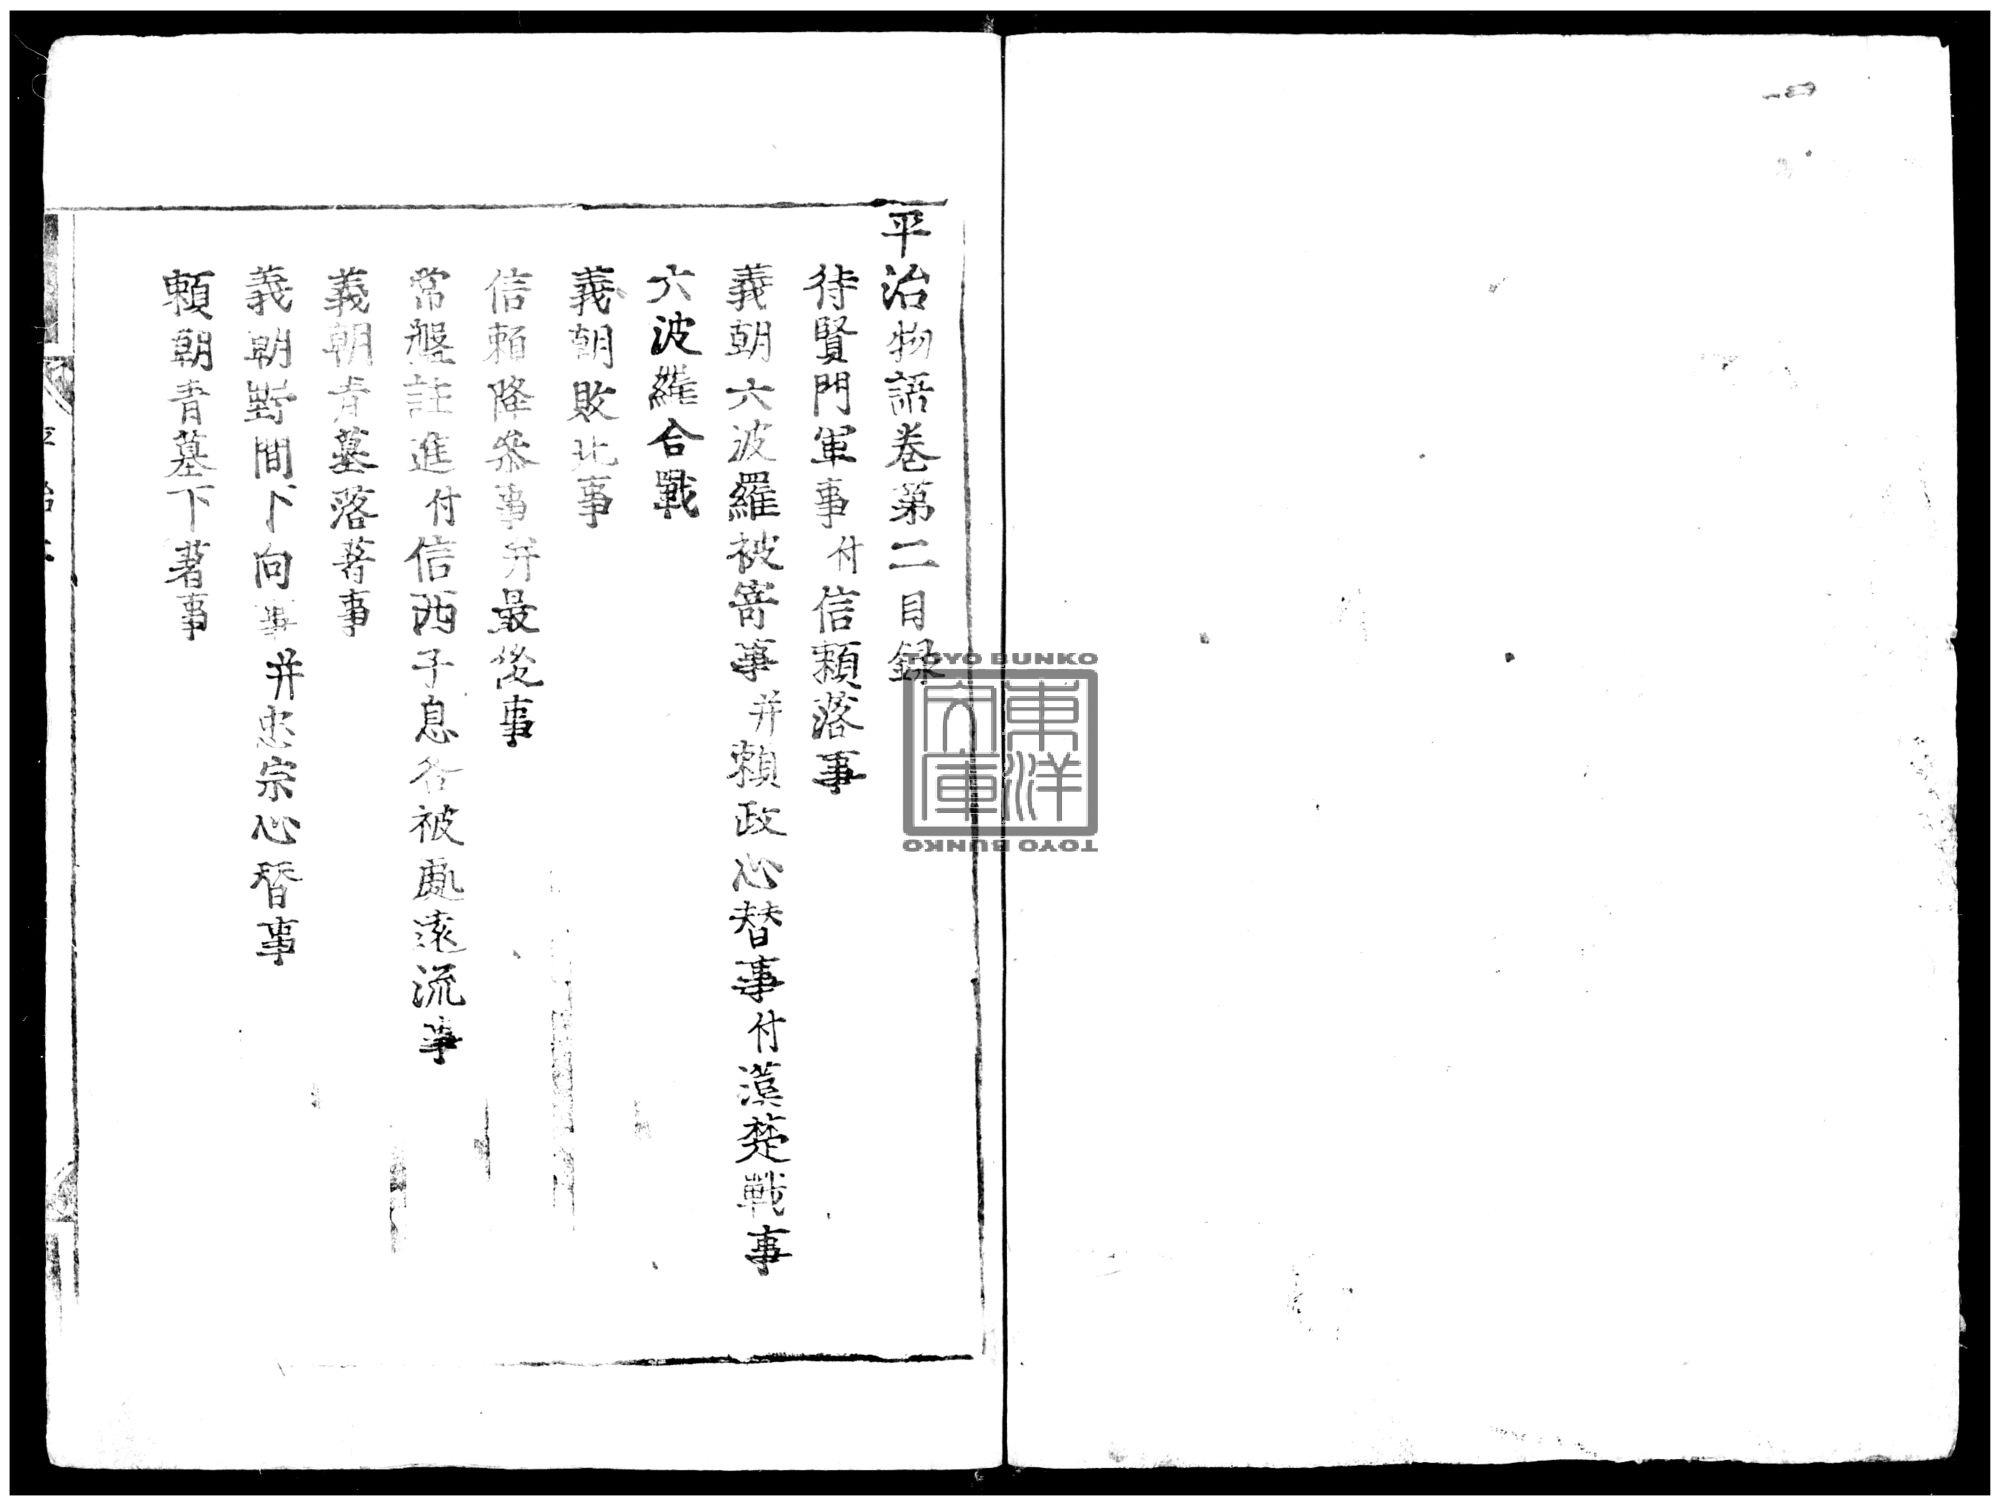 平治物語巻第二目録
待賢門軍事付信頼落事
義朝六波羅被寄事并頼政心替事付漢楚戦事
六波羅合戰
義朝敗北事
信頼降参事并最後事
常盤註進付信西子息各被處遠流事
義朝青墓落著事
義朝野間下向事并忠宗心替事
頼朝青墓下著事
平治二
TOYO BUNKO
東洋文庫
TOYO BUNKO